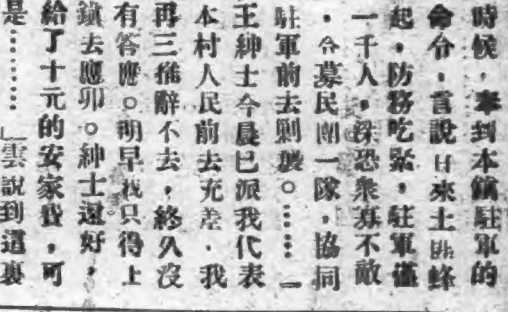 時候,奉到本鎮駐軍的
命令,言說日來土匪蜂
起,防務吃緊,駐軍僅
一千人,深恐衆寡不敵
,令募民團一隊,協同
駐軍前去剿襲。……
王紳士今晨已派我代表
本村人民前去充差.我
再三推辭不去,終久沒
有答應。明早我只得上
鎮去應卯。紳士還好,
給了十元的安家費,可
是………」雲說到這裏